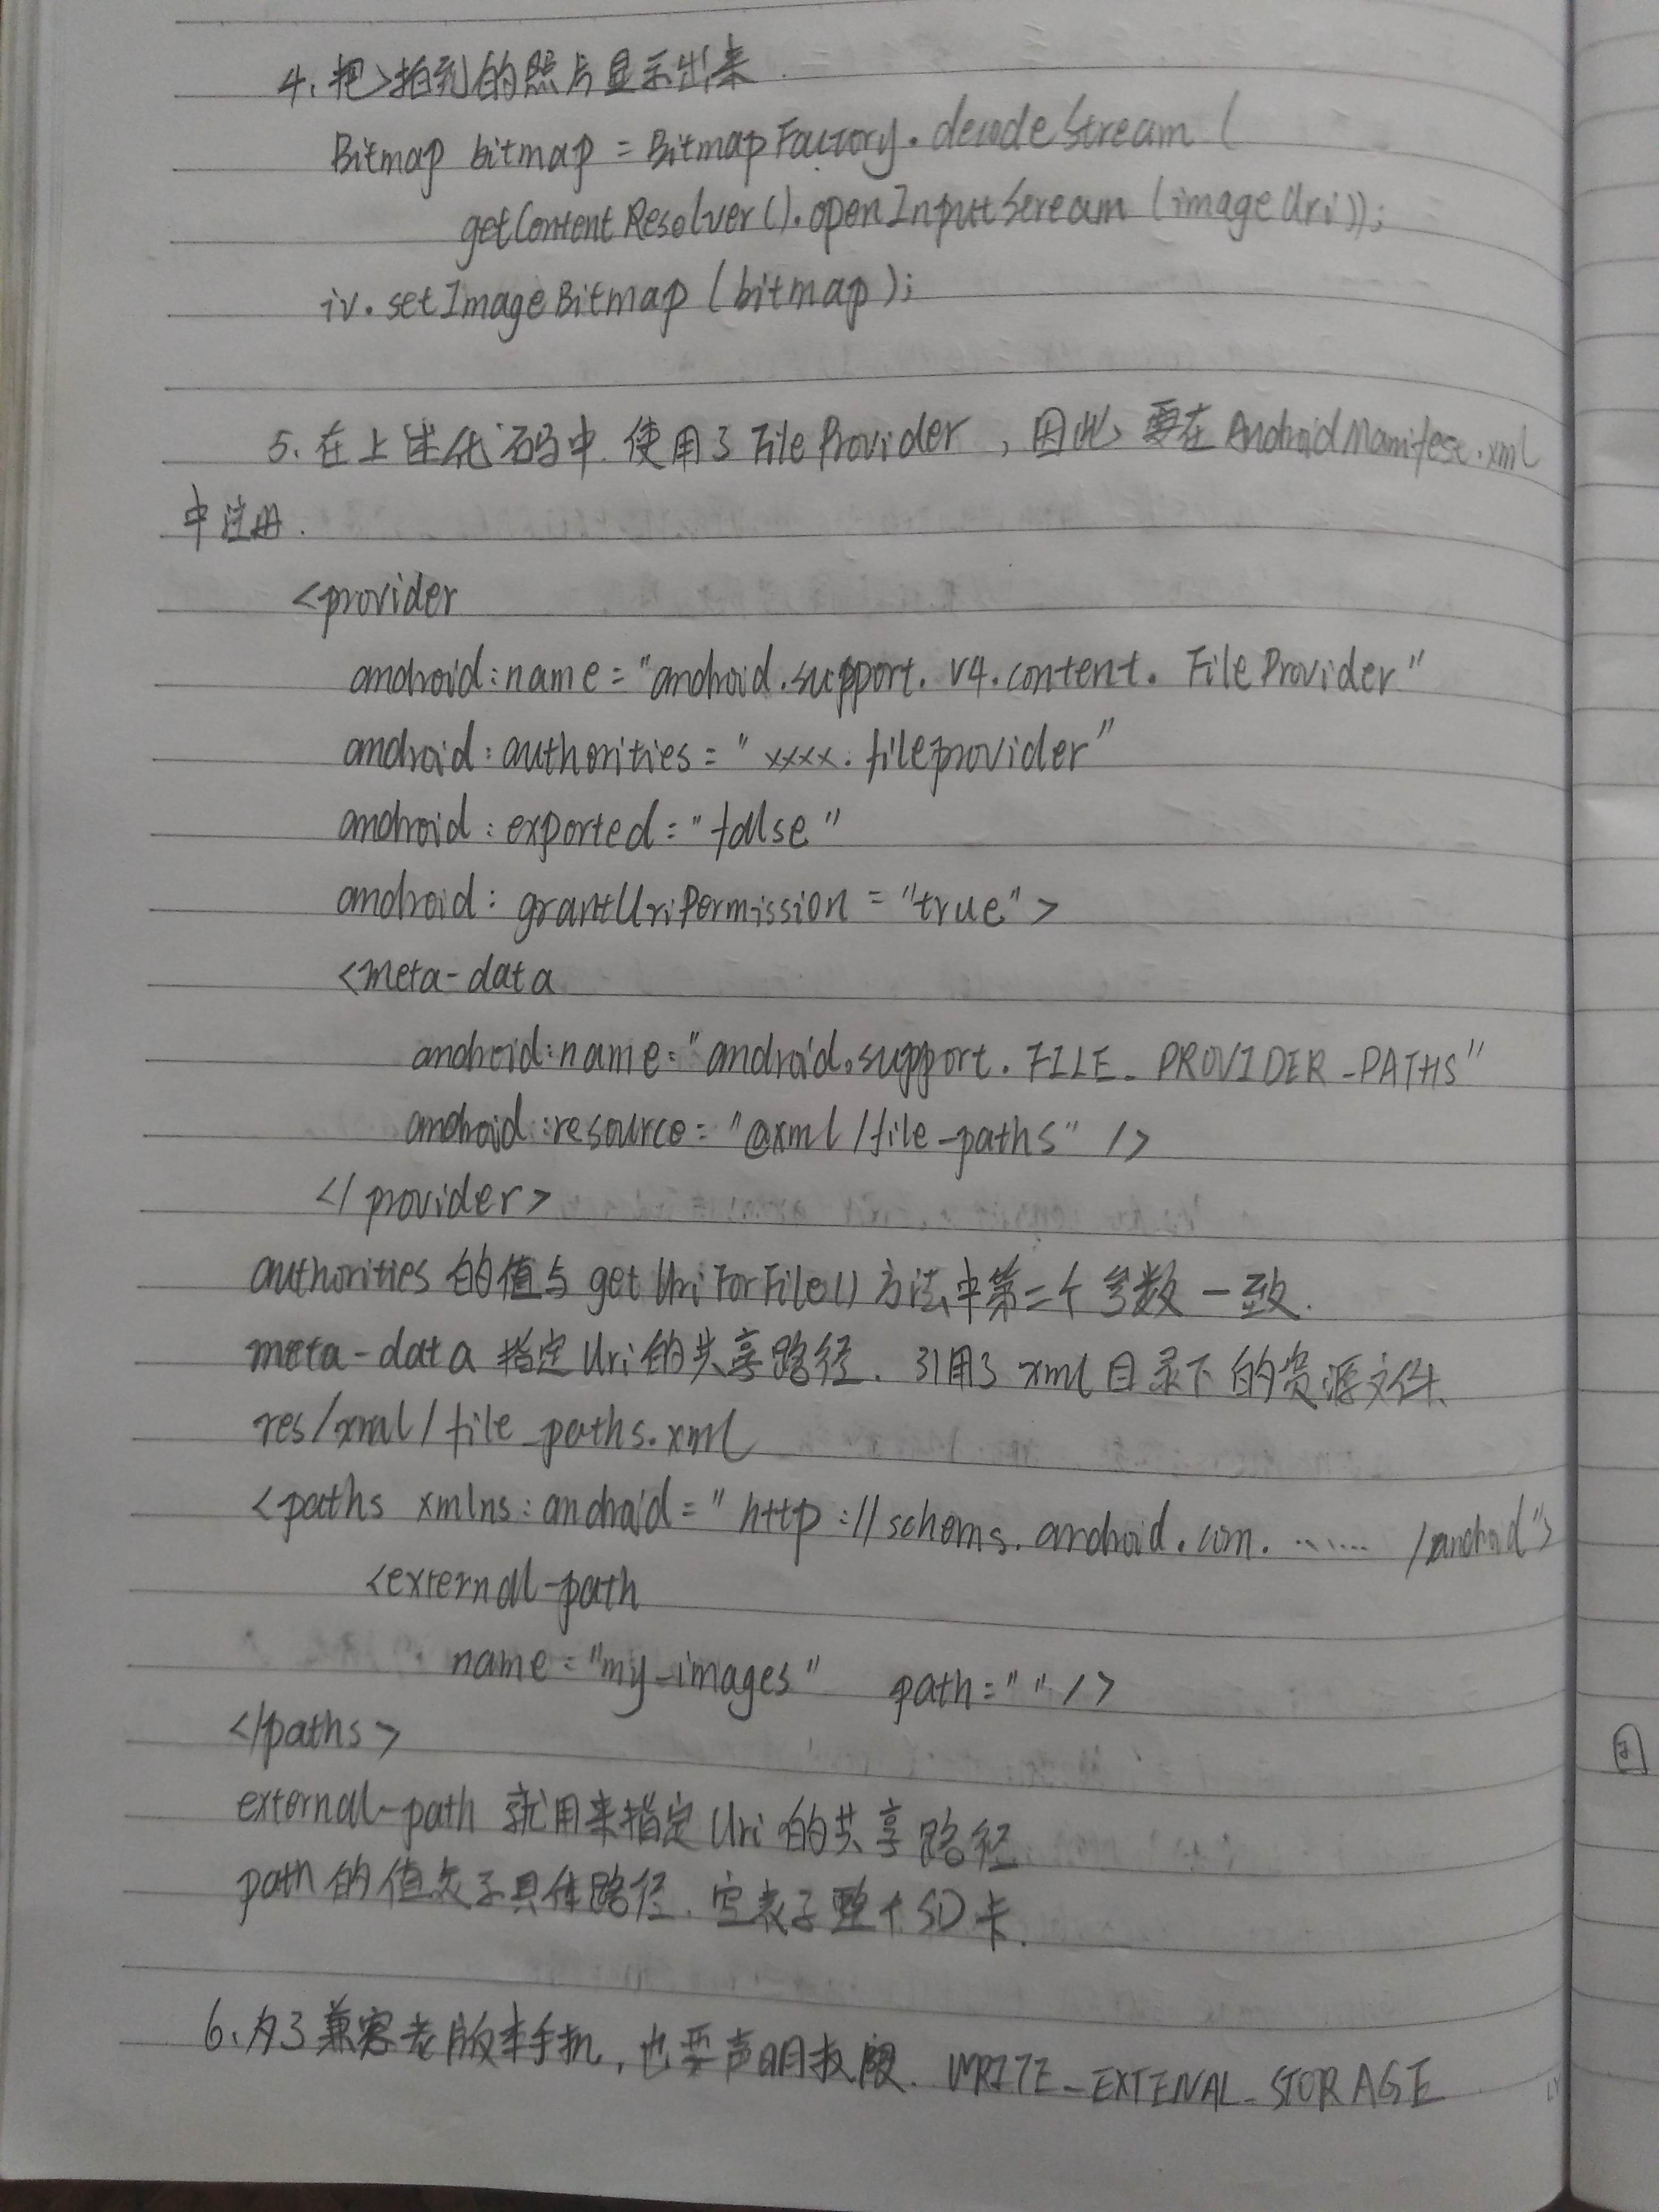 4、把拍到的照片显示出来
Bitmap bitmap = BitmapFactory.decodeStream (
getContentResolver().openInputStream (imageUri));
iv.setImageBitmap (bitmap);
5、在上述代码中.使用了FileProvider，因此要在AndroidManifest.xml
中注册.
<provider
android:name="android.support.v4.content.FileProvider"
android:authorities="xxxx.fileprovider"
android:exported="false"
android:grantUriPermission="true">
<meta-data
android:name="android.support.FILE_PROVIDER_PATHS"
android:resource="@xml/file_paths" />
</provider>
authorities 的值与 getUriForFile()方法中第二个参数一致.
meta-data 指定Uri的共享路径、引用了xml目录下的资源文件、
res/xml/file_paths.xml
<paths xmlns:android="http://schems.android.com. ...... /android">
<external-path
name="my_images" path="" />
</paths>
external-path 就用来指定Uri的共享路径
path的值表示具体路径、空表示整个SD卡.
6、为了兼容老版本手机，也要声明权限. WRITE_EXTENAL_STORAGE